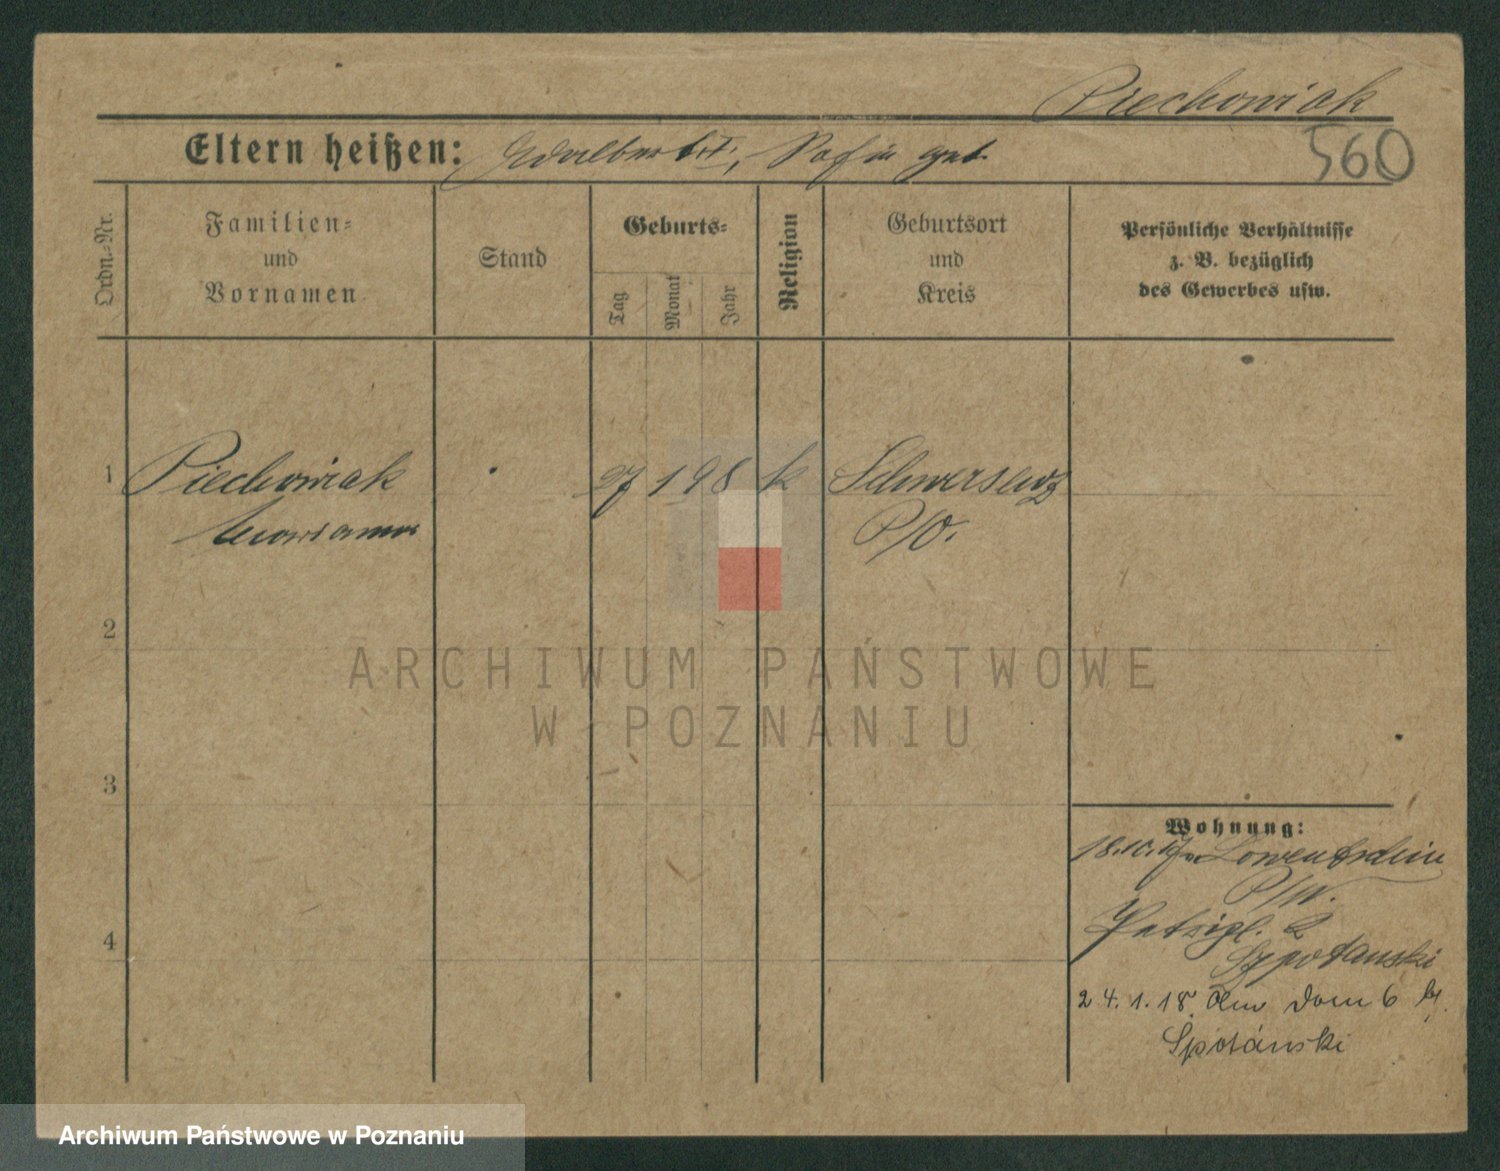 Piechowiak
560
Eltern heißen: Adalbert, Sofia geb.
Ordn.-Nr.
Familien-
und
Vornamen
Stand
Geburts-
Tag
Monat
Jahr
Religion
Geburtsort
und
Kreis
Persönliche Verhältnisse
z. B. bezüglich
des Gewerbes usw.
1 Piechowiak 27 1 98 k Schwersenz
Marianna P/O.
2
3
4
ARCHIWUM PAŃSTWOWE
W POZNANIU
Wohnung:
18.10.17 Lowentschin
P/W.
Petripl. 2
Szpotanski
24.1.18. Am Dom 6 bei
Spotánski
Archiwum Państwowe w Poznaniu